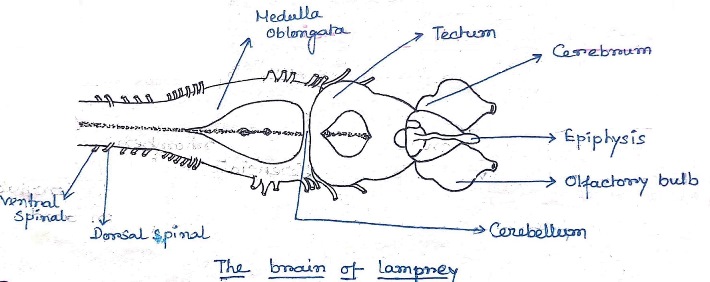 Medulla
Oblongata
Tectum
Cerebrum
Epiphysis
Olfactory bulb
Cerebellum
Ventral
Spinal
Dorsal spinal
The brain of lamprey